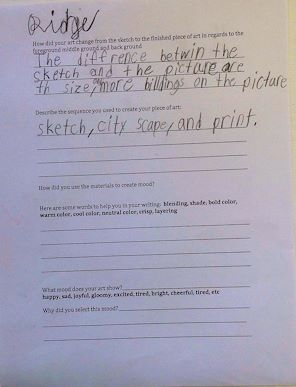 Ridge
How did your art change from the sketch to the finished piece of art in regards to the
foreground middle ground and back ground
The diffrence betwin the
sketch and the picture are
th size, more billdings on the pictare
Describe the sequence you used to create your piece of art:
sketch, city scape, and print.
How did you use the materials to create mood?
Here are some words to help you in your writing: blending, shade, bold color,
warm color, cool color, neutral color, crisp, layering
What mood does your art show?
happy, sad, joyful, gloomy, excited, tired, bright, cheerful, tired, etc
Why did you select this mood?